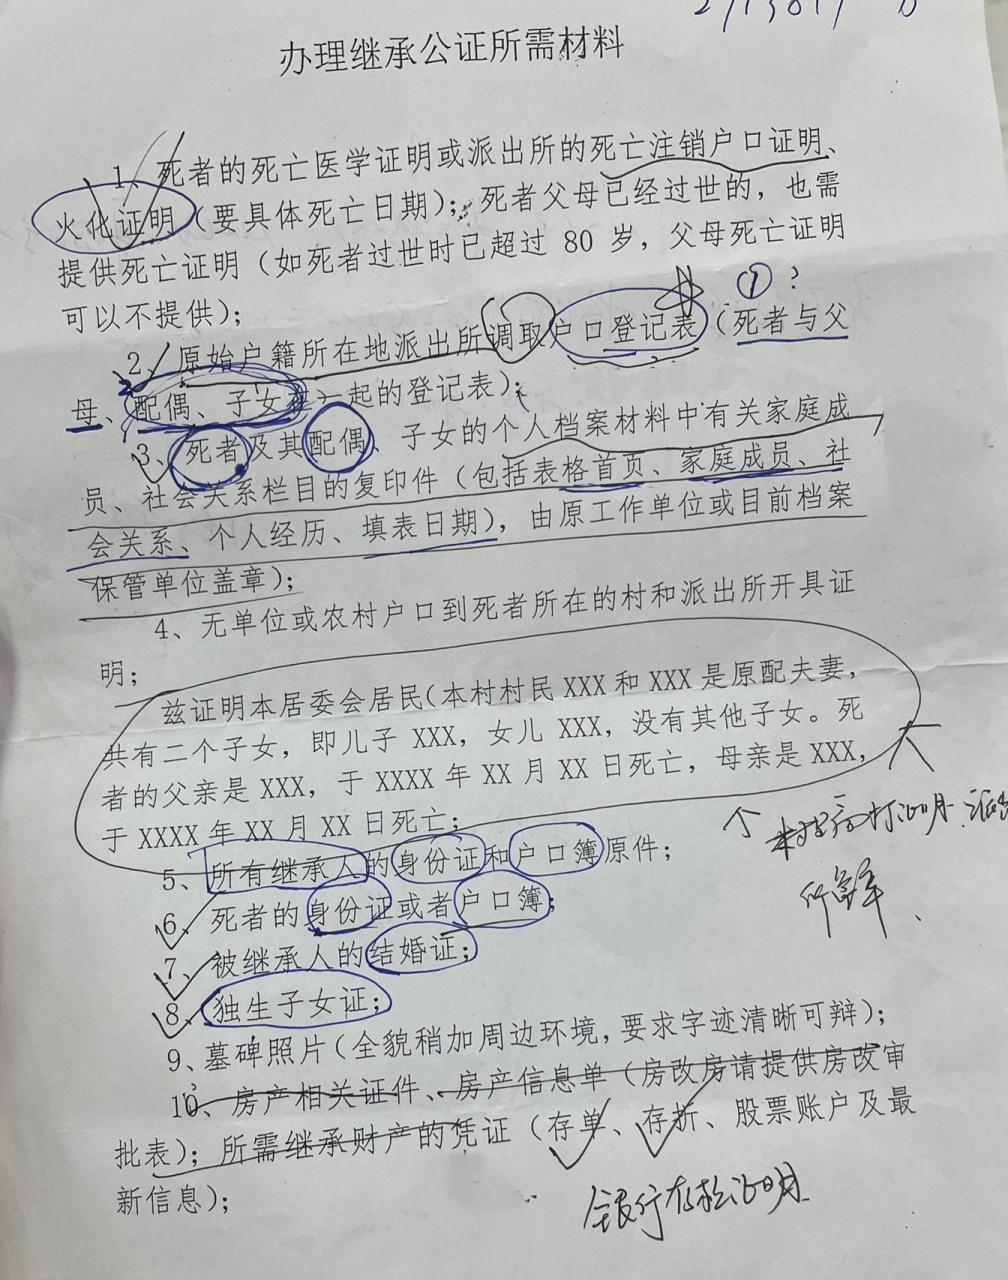 办理继承公证所需材料
1、死者的死亡医学证明或派出所的死亡注销户口证明、
火化证明（要具体死亡日期）；死者父母已经过世的，也需
提供死亡证明（如死者过世时已超过 80 岁，父母死亡证明
可以不提供）；
① ?
2、原始户籍所在地派出所调取户口登记表（死者与父
母、配偶、子女在一起的登记表）；
3、死者及其配偶、子女的个人档案材料中有关家庭成
员、社会关系栏目的复印件（包括表格首页、家庭成员、社
会关系、个人经历、填表日期），由原工作单位或目前档案
保管单位盖章）；
4、无单位或农村户口到死者所在的村和派出所开具证
明；
兹证明本居委会居民（本村村民 XXX 和 XXX 是原配夫妻，
共有二个子女，即儿子 XXX，女儿 XXX，没有其他子女。死
者的父亲是 XXX，于 XXXX 年 XX 月 XX 日死亡，母亲是 XXX，
于 XXXX 年 XX 月 XX 日死亡；
5、所有继承人的身份证和户口簿原件；
6、死者的身份证或者户口簿；
7、被继承人的结婚证；
8、独生子女证；
9、墓碑照片（全貌稍加周边环境，要求字迹清晰可辩）；
10、房产相关证件、房产信息单（房改房请提供房改审
批表）；所需继承财产的凭证（存单、存折、股票账户及最
新信息）；
银行存款证明